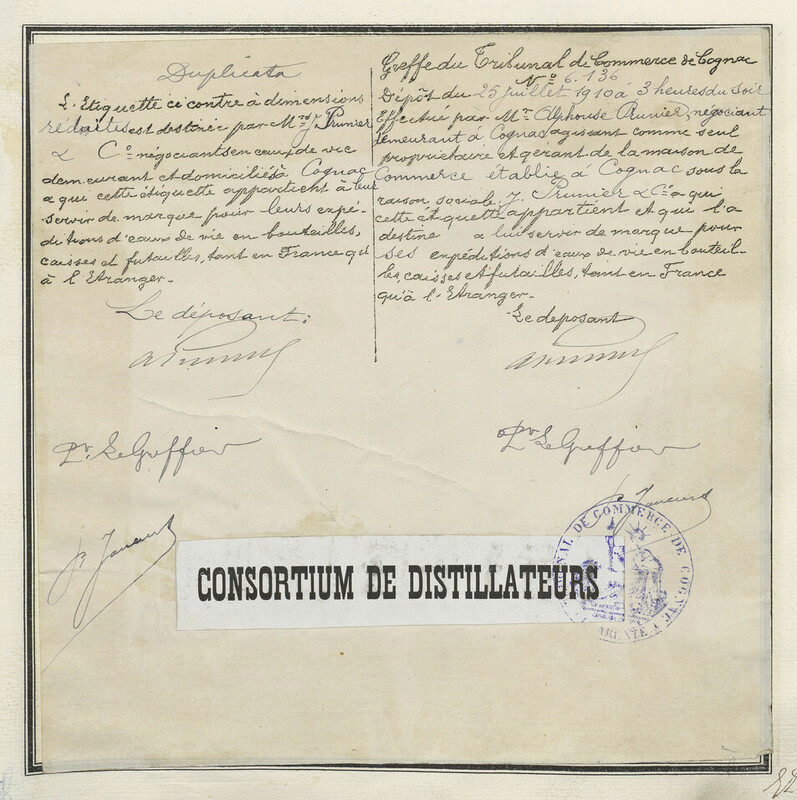 Duplicata
L'Etiquette ci contre à dimensions
réduites est destinée par Mrs J. Prunier
& Co négociants en eaux de vie
demeurant et domiciliés à Cognac
a qui cette étiquette appartient à leur
servir de marque pour leurs expé-
ditions d'eaux de vie en bouteilles,
caisses et futailles, tant en France qu'
à l'Etranger.
Le déposant:
Pr. Le Greffier
Greffe du Tribunal de Commerce de Cognac
No 6.136
Dépôt du 25 juillet 1910 à 3 heures du soir
Effectué par Mr. Alphonse Prunier, négociant
demeurant à Cognac agissant comme seul
propriétaire et gérant de la maison de
Commerce établie à Cognac sous la
raison sociale J. Prunier & Cie a qui
cette étiquette appartient et qui l'a
destine a lui servir de marque pour
ses expéditions d'eaux de vie en bouteil-
les, caisses et futailles, tant en France
qu'à l'Etranger.
Le deposant
Pr. Le Greffier
CONSORTIUM DE DISTILLATEURS
TRIBUNAL DE COMMERCE DE COGNAC